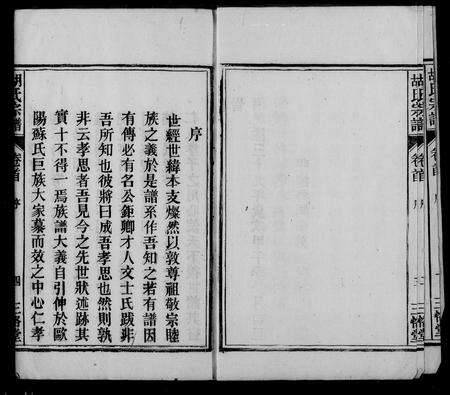 胡氏宗譜
卷首
序
三
三
堂
序
世經世緯本支燦然以敦尊祖敬宗睦
族之義於是譜系作吾知之若有譜因
有傳必有名公鉅卿才人文士氏跋非
吾所知也彼將曰成吾孝思也然則孰
非云孝思者吾見今之先世狀述跡其
實十不得一焉族譜大義自引伸於歐
陽蘇氏巨族大家摹而效之中心仁孝
胡氏宗譜
卷首
序
四
三
堂